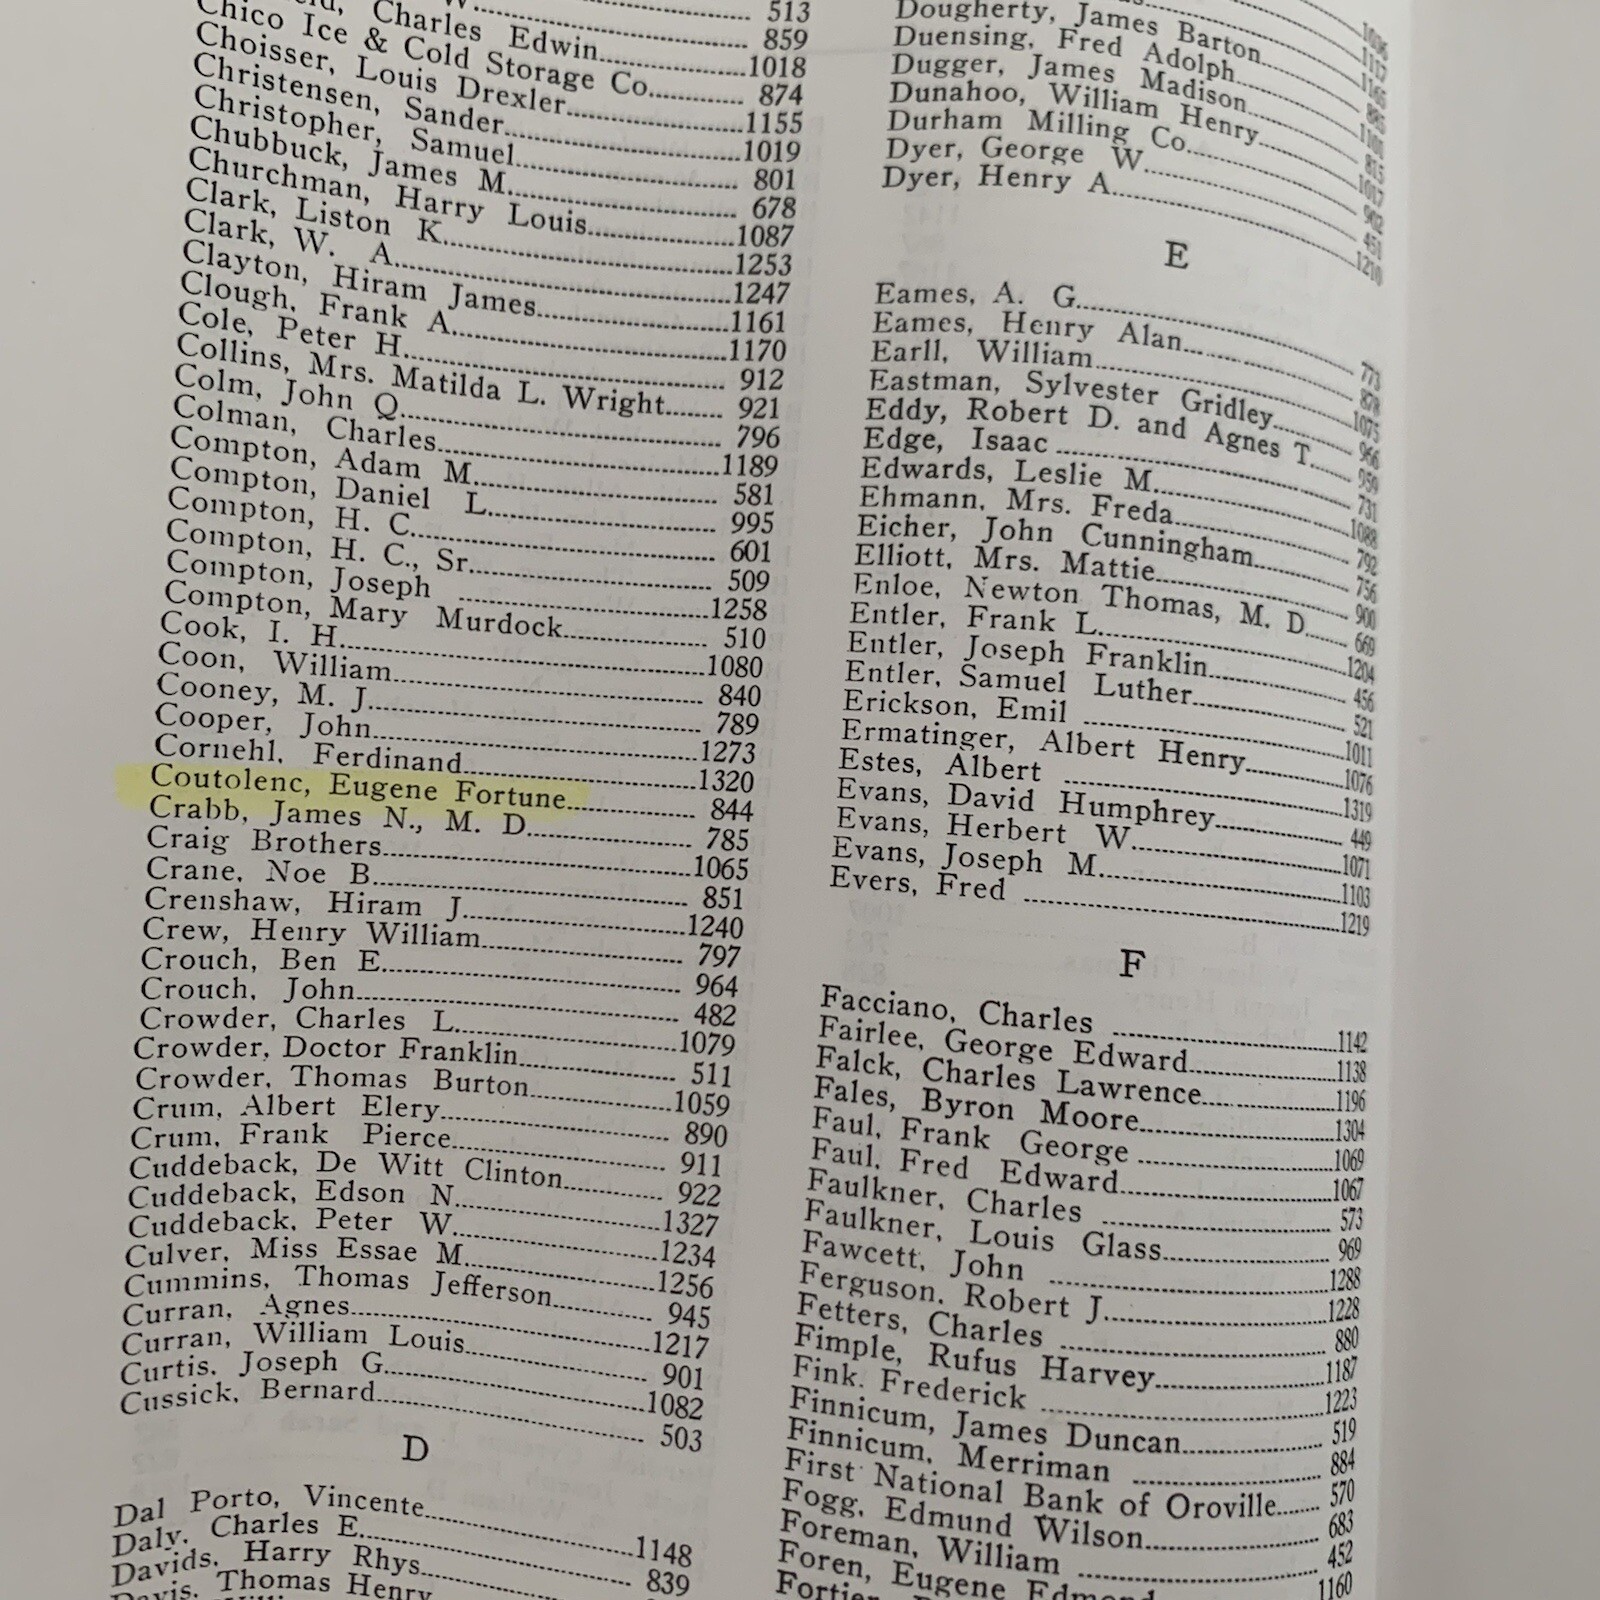 513
W. 859
Charles Edwin 1018
Chico Ice & Cold Storage Co. 874
Choisser, Louis Drexler 1155
Christensen, Sander 1019
Christopher, Samuel 801
Chubbuck, James M. 678
Churchman, Harry Louis 1087
Clark, Liston K. 1253
Clark, W. A. 1247
Clayton, Hiram James 1161
Clough, Frank A. 1170
Cole, Peter H. 912
Collins, Mrs. Matilda L. Wright 921
Colm, John Q. 796
Colman, Charles 1189
Compton, Adam M. 581
Compton, Daniel L. 995
Compton, H. C. 601
Compton, H. C., Sr. 509
Compton, Joseph 1258
Compton, Mary Murdock 510
Cook, I. H. 1080
Coon, William 840
Cooney, M. J. 789
Cooper, John 1273
Cornehl, Ferdinand 1320
Coutolenc, Eugene Fortune 844
Crabb, James N., M. D. 785
Craig Brothers 1065
Crane, Noe B. 851
Crenshaw, Hiram J. 1240
Crew, Henry William 797
Crouch, Ben E. 964
Crouch, John 482
Crowder, Charles L. 1079
Crowder, Doctor Franklin 511
Crowder, Thomas Burton 1059
Crum, Albert Elery 890
Crum, Frank Pierce 911
Cuddeback, De Witt Clinton 922
Cuddeback, Edson N. 1327
Cuddeback, Peter W. 1234
Culver, Miss Essae M. 1256
Cummins, Thomas Jefferson 945
Curran, Agnes 1217
Curran, William Louis 901
Curtis, Joseph G. 1082
Cussick, Bernard 503
D
Dal Porto, Vincente 1148
Daly, Charles E. 839
Davids, Harry Rhys
Davis, Thomas Henry
1117
1165
Dougherty, James Barton 885
Duensing, Fred Adolph 1101
Dugger, James Madison 815
Dunahoo, William Henry 1017
Durham Milling Co. 902
Dyer, George W. 451
Dyer, Henry A. 1210
E
Eames, A. G. 773
Eames, Henry Alan 878
Earll, William 1075
Eastman, Sylvester Gridley 966
Eddy, Robert D. and Agnes T. 959
Edge, Isaac 731
Edwards, Leslie M. 1088
Ehmann, Mrs. Freda 792
Eicher, John Cunningham 756
Elliott, Mrs. Mattie 900
Enloe, Newton Thomas, M. D. 669
Entler, Frank L. 1204
Entler, Joseph Franklin 456
Entler, Samuel Luther 521
Erickson, Emil 1011
Ermatinger, Albert Henry 1076
Estes, Albert 1319
Evans, David Humphrey 449
Evans, Herbert W. 1071
Evans, Joseph M. 1103
Evers, Fred 1219
F
Facciano, Charles 1142
Fairlee, George Edward 1138
Falck, Charles Lawrence 1196
Fales, Byron Moore 1304
Faul, Frank George 1069
Faul, Fred Edward 1067
Faulkner, Charles 573
Faulkner, Louis Glass 969
Fawcett, John 1288
Ferguson, Robert J. 1228
Fetters, Charles 880
Fimple, Rufus Harvey 1187
Fink, Frederick 1223
Finnicum, James Duncan 519
Finnicum, Merriman 884
First National Bank of Oroville 570
Fogg, Edmund Wilson 683
Foreman, William 452
Foren, Eugene Edmond 1160